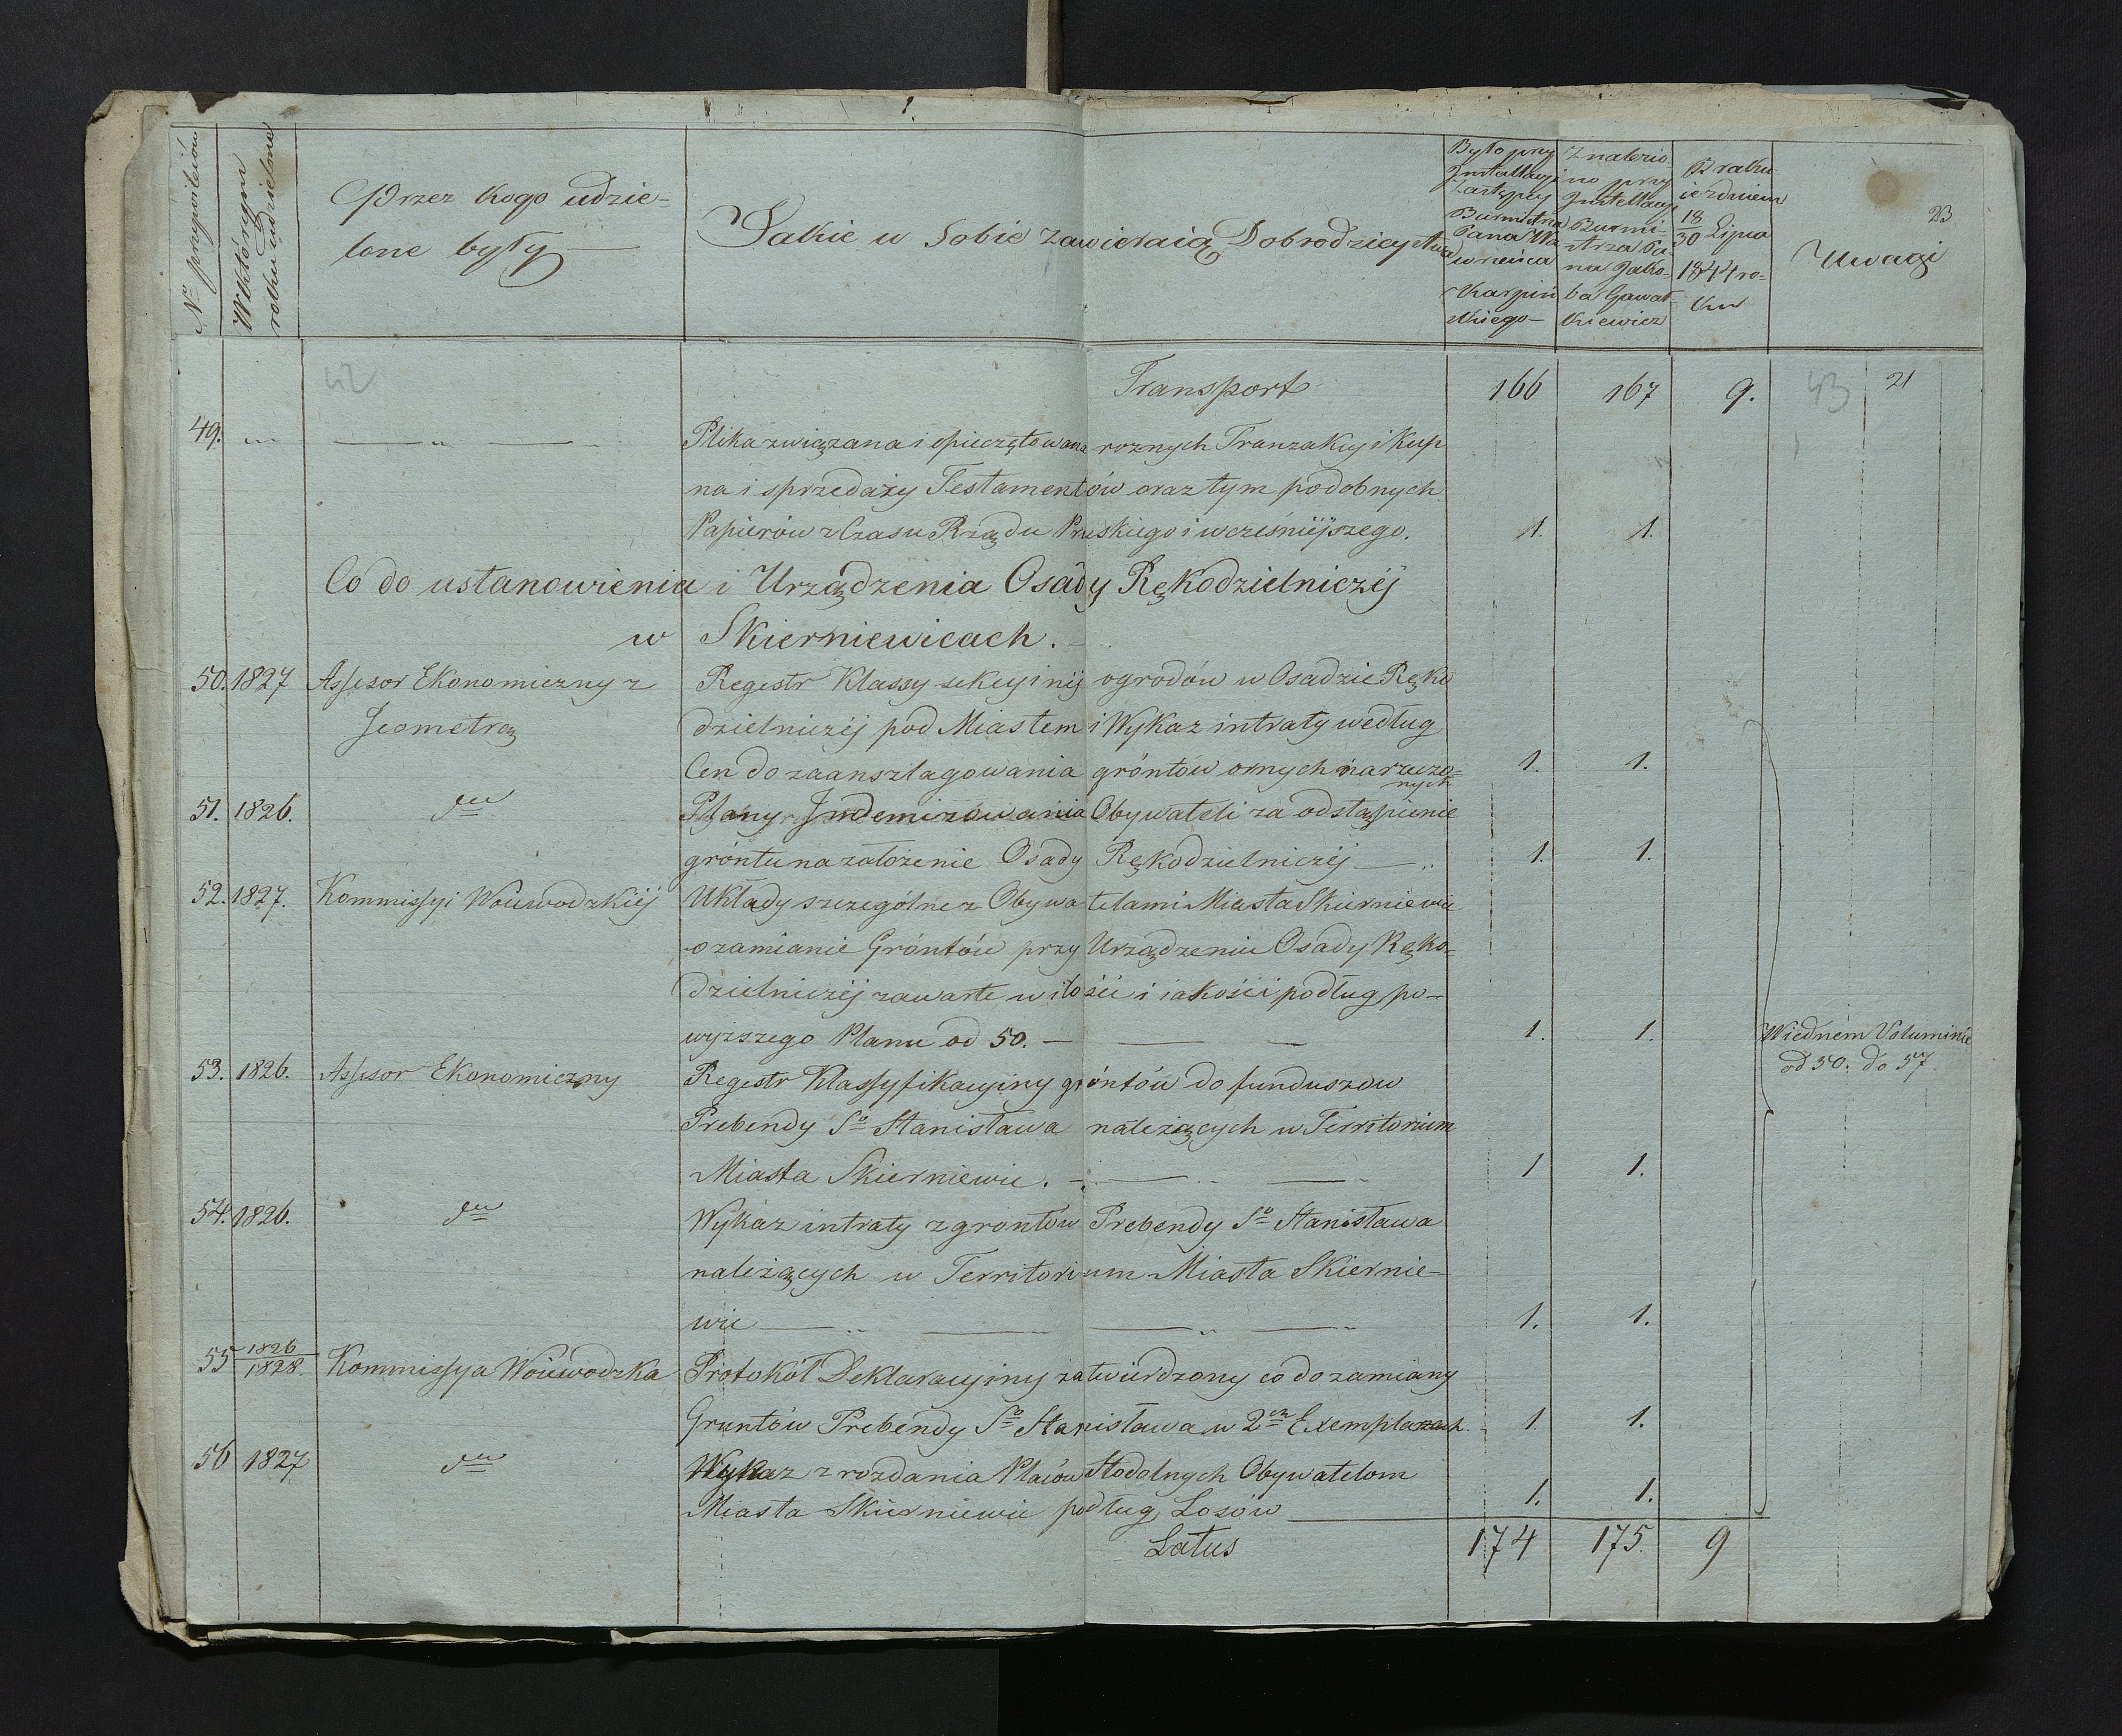 23
Nr przywileiów
W którym roku udzielone
Przez kogo udzie-
lone były
Jakie w sobie zawieraią Dobrodzieystwa
Było przy
Installacyi
Zastępcy
Burmistrza
Pana Wa
wrzeńca
Karpiń
skiego
Znalezio
no przy
Installacyi
Burmi-
strza Pa-
na Jako-
ba Gawat-
kiewicz
Braku-
ie z dniem
18/30 Lipca
1844 ro-
ku
Uwagi
42
Transport 166 167 9. 43 21
49. Plika związana i opieczętowana roznych Tranzakcyi Kup
na i sprzedaży Testamentów oraz tym podobnych
Papierów z Czasu Rządu Pruskiego i wcześniejszego. 1. 1.
Co do ustanowienia i Urządzenia Osady Rękodzielniczéj
w Skierniewicach.
50. 1827 Assesor Ekonomiczny z Regestr Klassy sekcyinéj ogrodów w Osadzie Ręko
Jeometrą dzielniczéj pod Miastem i Wykaz intraty według
Cen do zaanszlagowania gróntów ornych narzuzo=
nych 1. 1.
51. 1826. dto Plany Indemizowania Obywateli za odstąpienie
gróntu na założenie Osady Rękodzielniczéj 1. 1.
52. 1827. Kommissyi Woiewodzkiéj Układy szczególne z Obywatelami Miasta Skierniewic
o zamianie Gróntów przy Urządzeniu Osady Ręko-
dzielniczéj zawarte w ilości i iakości podług po-
wyższego Planu od 50. 1. 1. W iednem Voluminie
od 50. do 57
53. 1826. Assesor Ekonomiczny Regestr Klassyfikacyiny gróntów do funduszow
Prebendy So Stanisława należących w Territorium
Miasta Skierniewic. 1 1.
54. 1826. dto Wykaz intraty z grontów Prebendy So Stanisława
należących w Territorium Miasta Skiernie-
wic 1. 1.
55 1826/1828. Kommissya Woiewodzka Protokół Deklaracyiny zatwierdzony co do zamiany
Gruntów Prebendy So Stanisława w 2ch Exemplarzach. 1. 1.
56 1827 dto Wykaz z rozdania Placów Stodolnych Obywatelom
Miasta Skierniewic podług Losów 1. 1.
Latus 174 175. 9